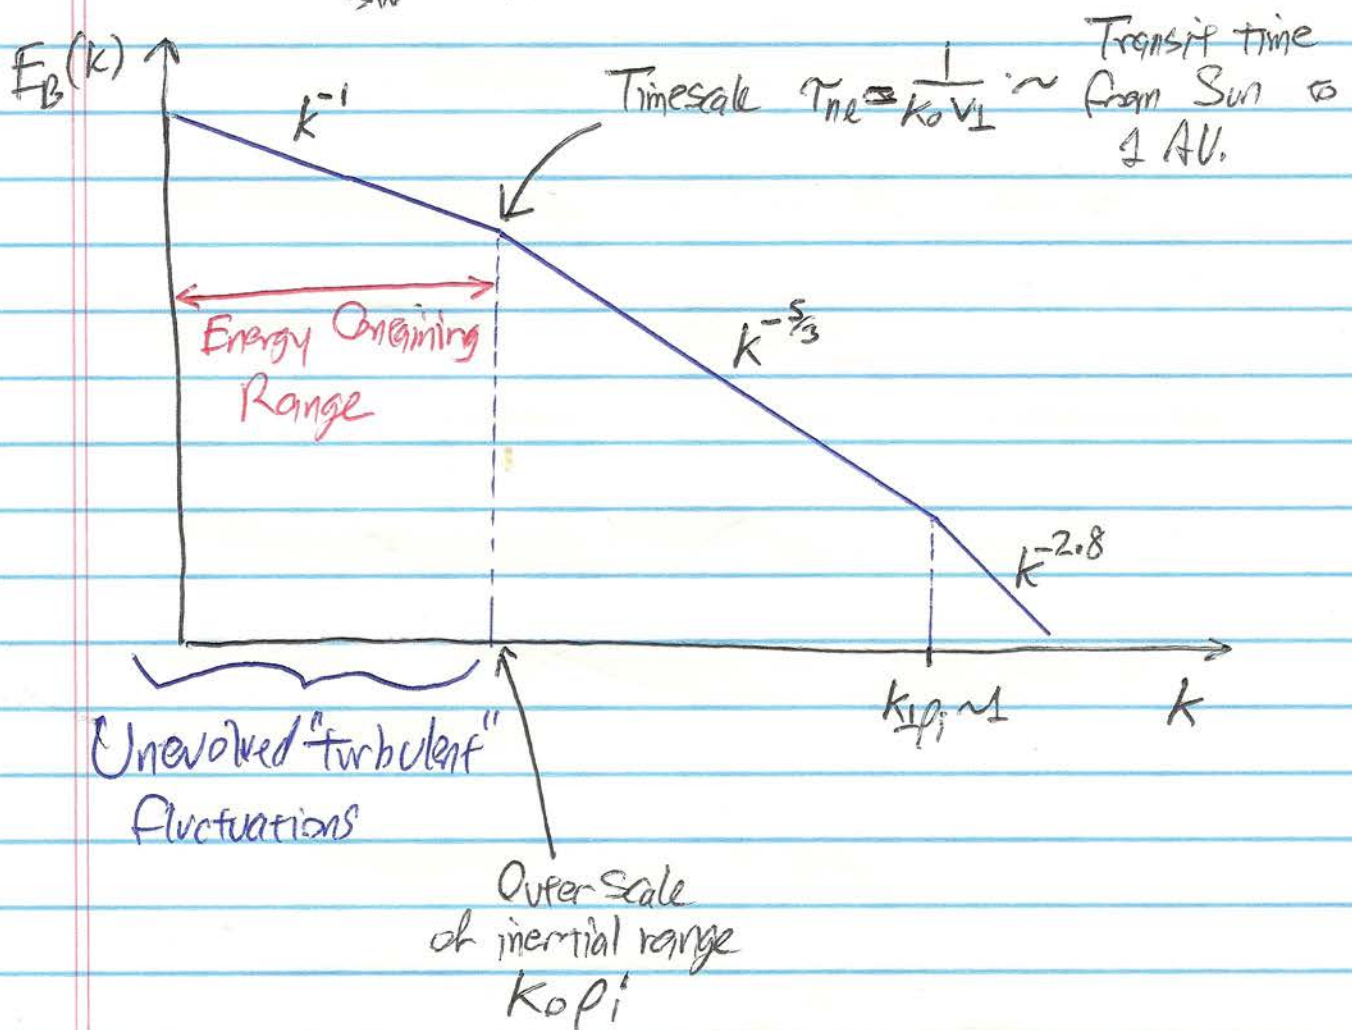 E_B(k)
k^{-1}
Timescale τ_{nl} = 1/(k_0 v_⊥) ~ Transit time
from Sun to
1 AU.
Energy Containing
Range
k^{-5/3}
k^{-2.8}
k_⊥ρ_i ~ 1
k
Unevolved "turbulent"
fluctuations
Outer Scale
of inertial range
k_0 ρ_i